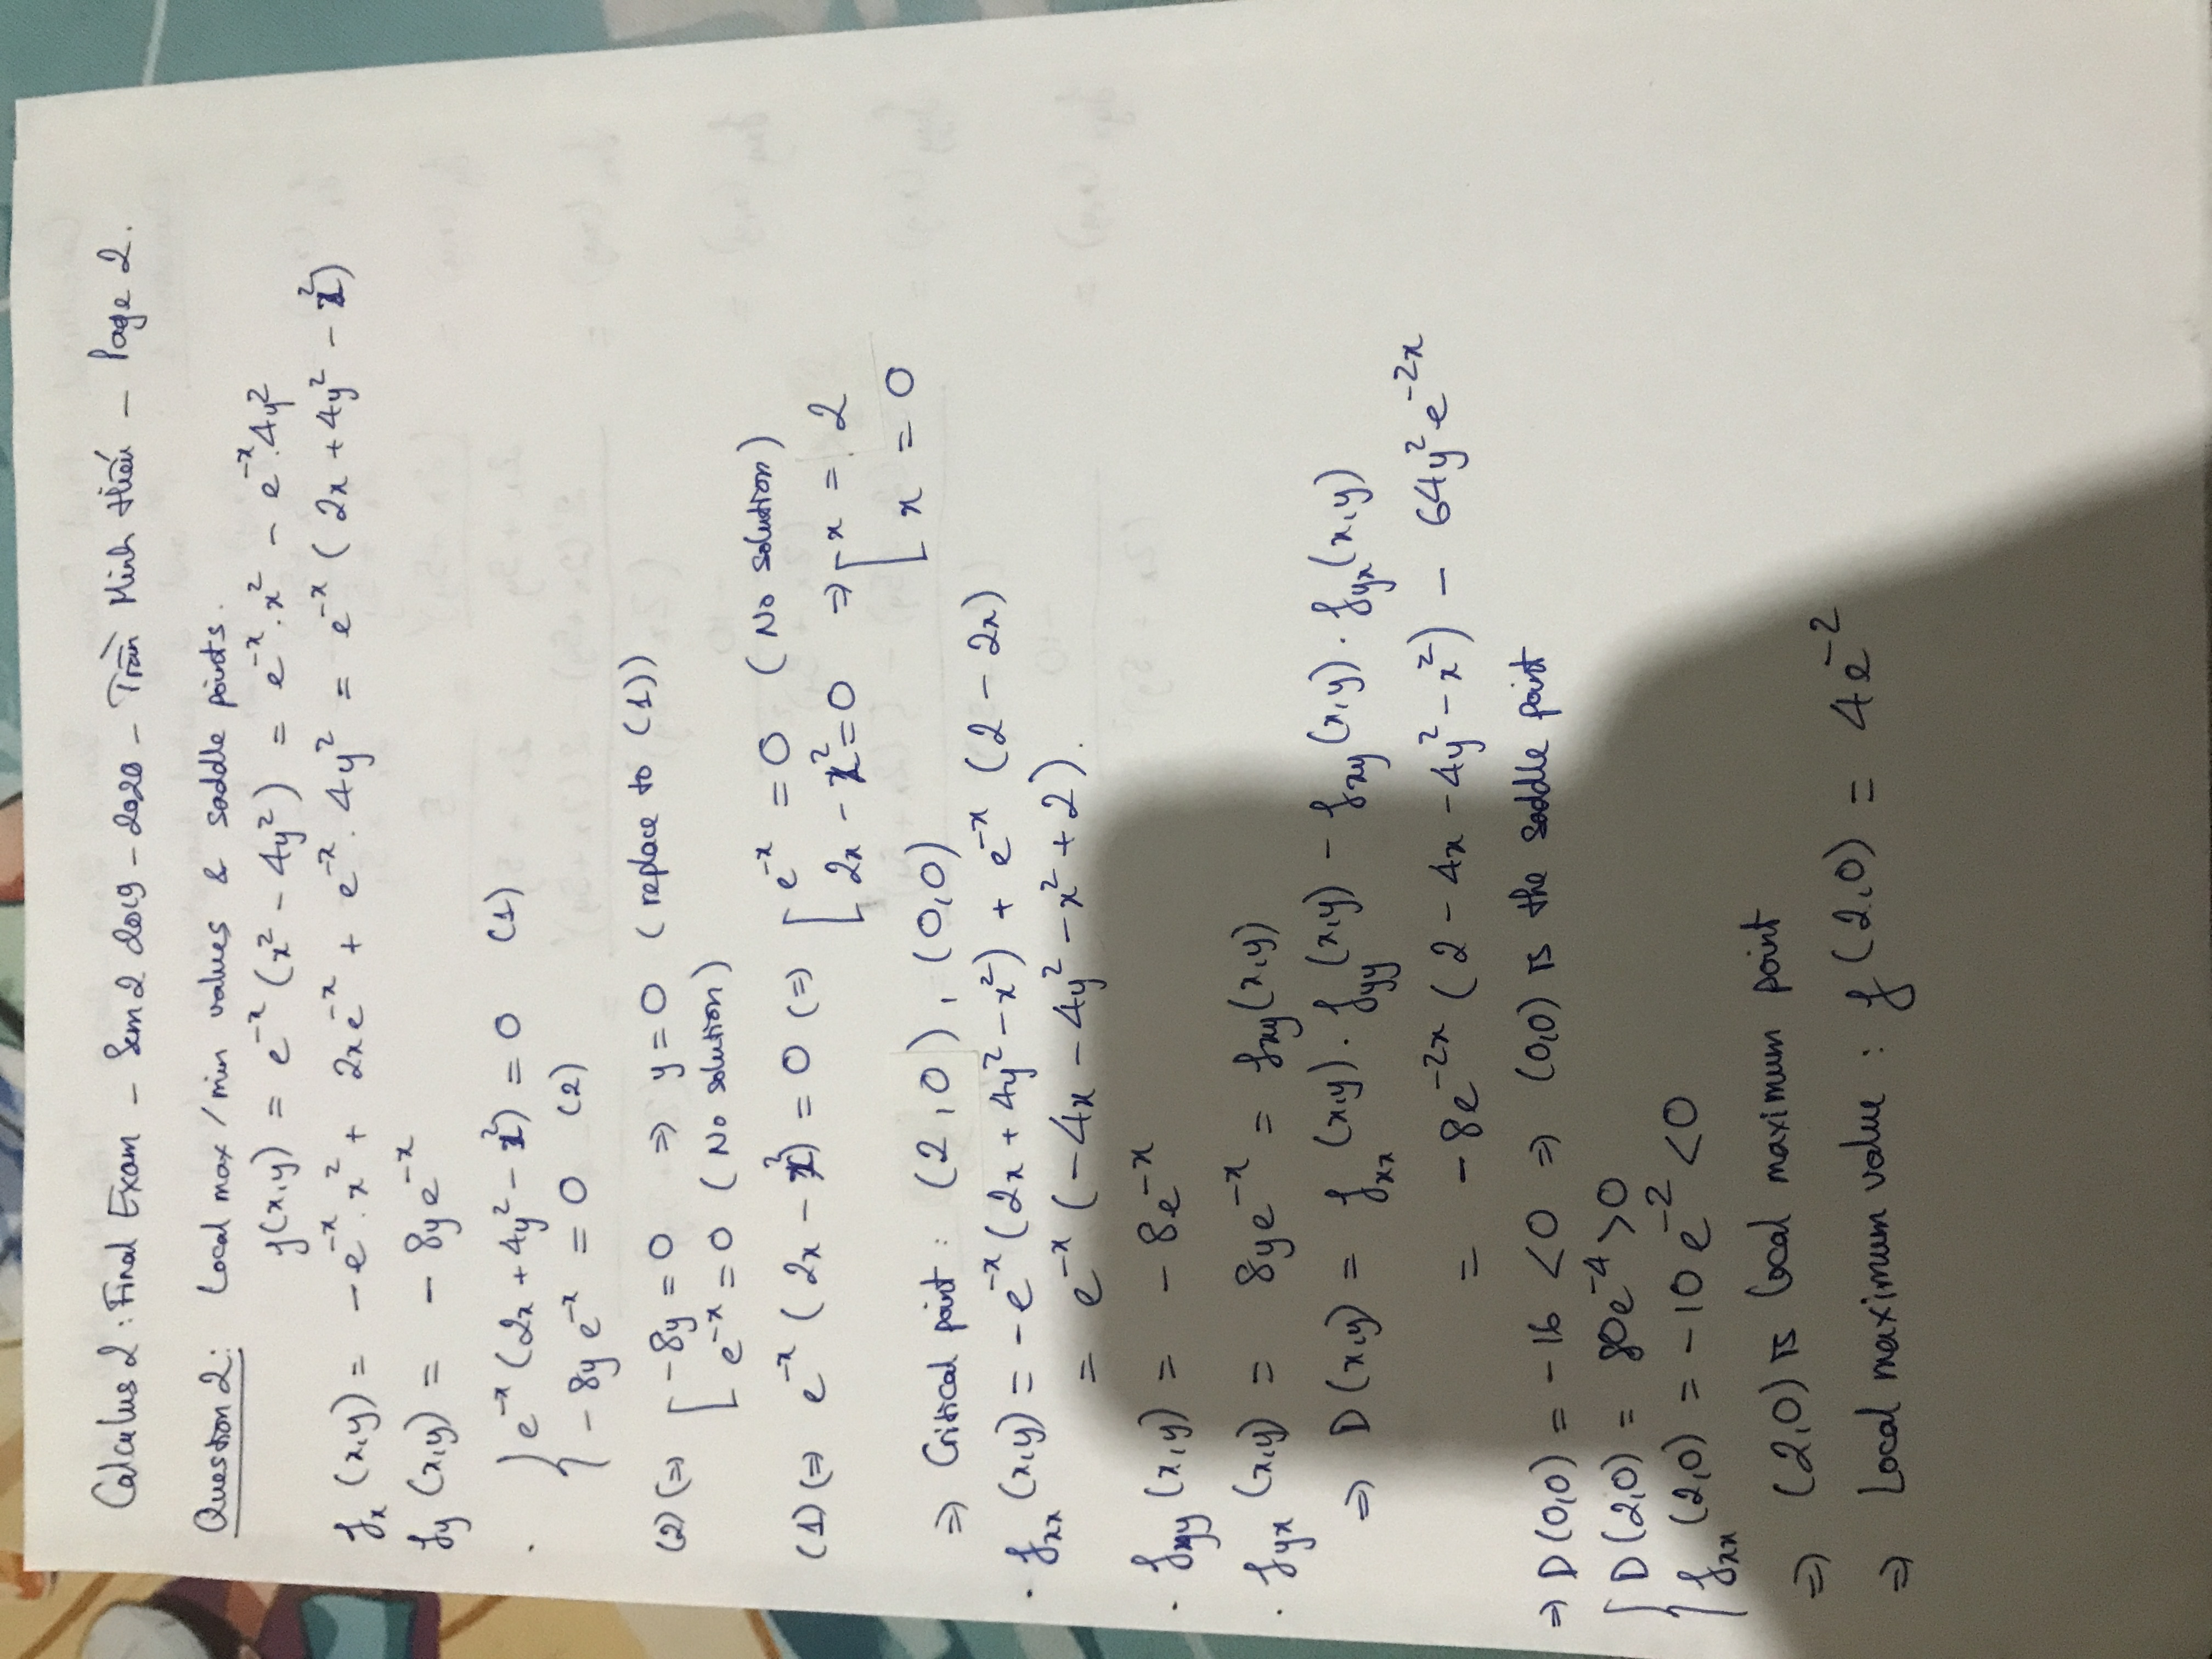 Calculus 2 : Final Exam – Sem 2 2019 – 2020 – Trần Minh Hiếu – Page 2.
Question 2: Local max / min values & saddle points.
f(x,y) = e^{-x} (x² - 4y²) = e^{-x}.x² - e^{-x}.4y²
f_x (x,y) = -e^{-x}.x² + 2xe^{-x} + e^{-x}.4y² = e^{-x} (2x + 4y² - x²)
f_y (x,y) = - 8ye^{-x}
. { e^{-x} (2x + 4y² - x²) = 0 (1)
- 8y e^{-x} = 0 (2)
(2) (=> [ -8y = 0 => y = 0 (replace to (1))
e^{-x} = 0 (No solution)
(1) (=> e^{-x} (2x - x²) = 0 (=> [ e^{-x} = 0 (No solution)
2x - x² = 0 => [ x = 2
x = 0
=> Critical point : (2,0), (0,0)
. f_xx (x,y) = -e^{-x} (2x + 4y² - x²) + e^{-x} (2 - 2x)
= e^{-x} (-4x - 4y² - x² + 2).
. f_yy (x,y) = - 8e^{-x}
. f_yx (x,y) = 8ye^{-x} = f_xy (x,y)
=> D(x,y) = f_xx (x,y) . f_yy (x,y) - f_xy (x,y) . f_yx (x,y)
= -8e^{-2x} (2 - 4x - 4y² - x²) - 64y²e^{-2x}
=> D(0,0) = -16 < 0 => (0,0) is the saddle point
{ D(2,0) = 80e^{-4} > 0
f_xx (2,0) = -10e^{-2} < 0
=> (2,0) is local maximum point
=> Local maximum value : f(2,0) = 4e^{-2}